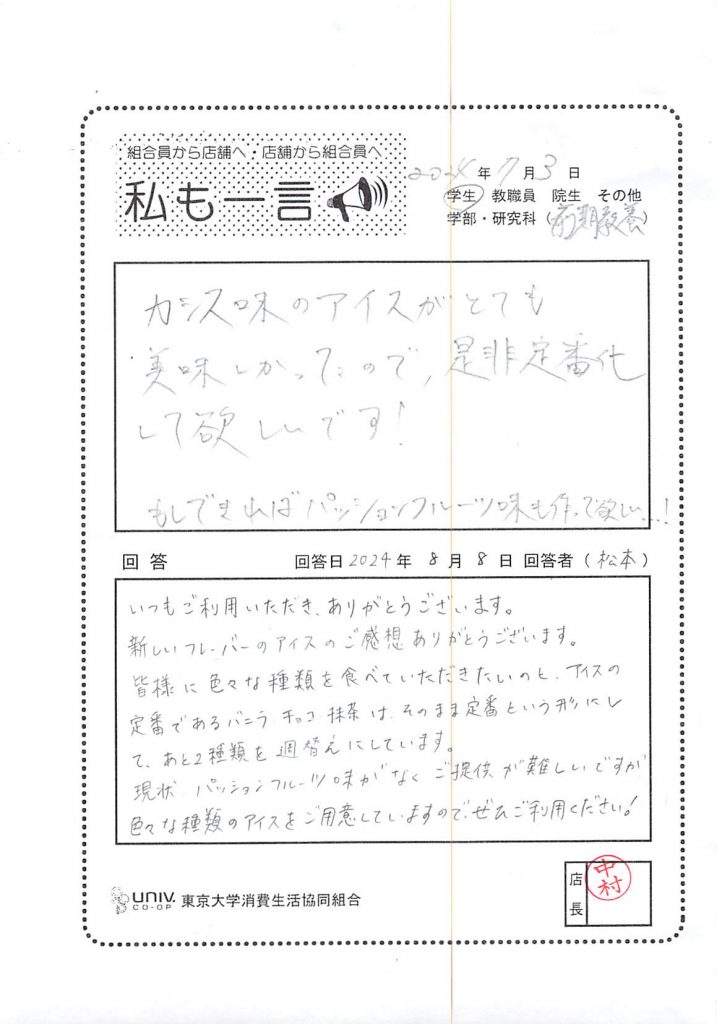 組合員から店舗へ・店舗から組合員へ
私も一言
2024年7月3日
学生 教職員 院生 その他
学部・研究科(前期教養)
カシス味のアイスがとても
美味しかったので、是非定番化
して欲しいです!
もしできればパッションフルーツ味も作って欲しい…!
回答 回答日2024年8月8日 回答者(松本)
いつもご利用いただき、ありがとうございます。
新しいフレーバーのアイスのご感想ありがとうございます。
皆様に色々な種類を食べていただきたいのと、アイスの
定番であるバニラ、チョコ、抹茶は、そのまま定番という形にし
て、あと2種類を週替えにしています。
現状、パッションフルーツ味がなくご提供が難しいですが
色々な種類のアイスをご用意していますので、ぜひご利用ください!
UNIV. CO-OP 東京大学消費生活協同組合
店長
中村